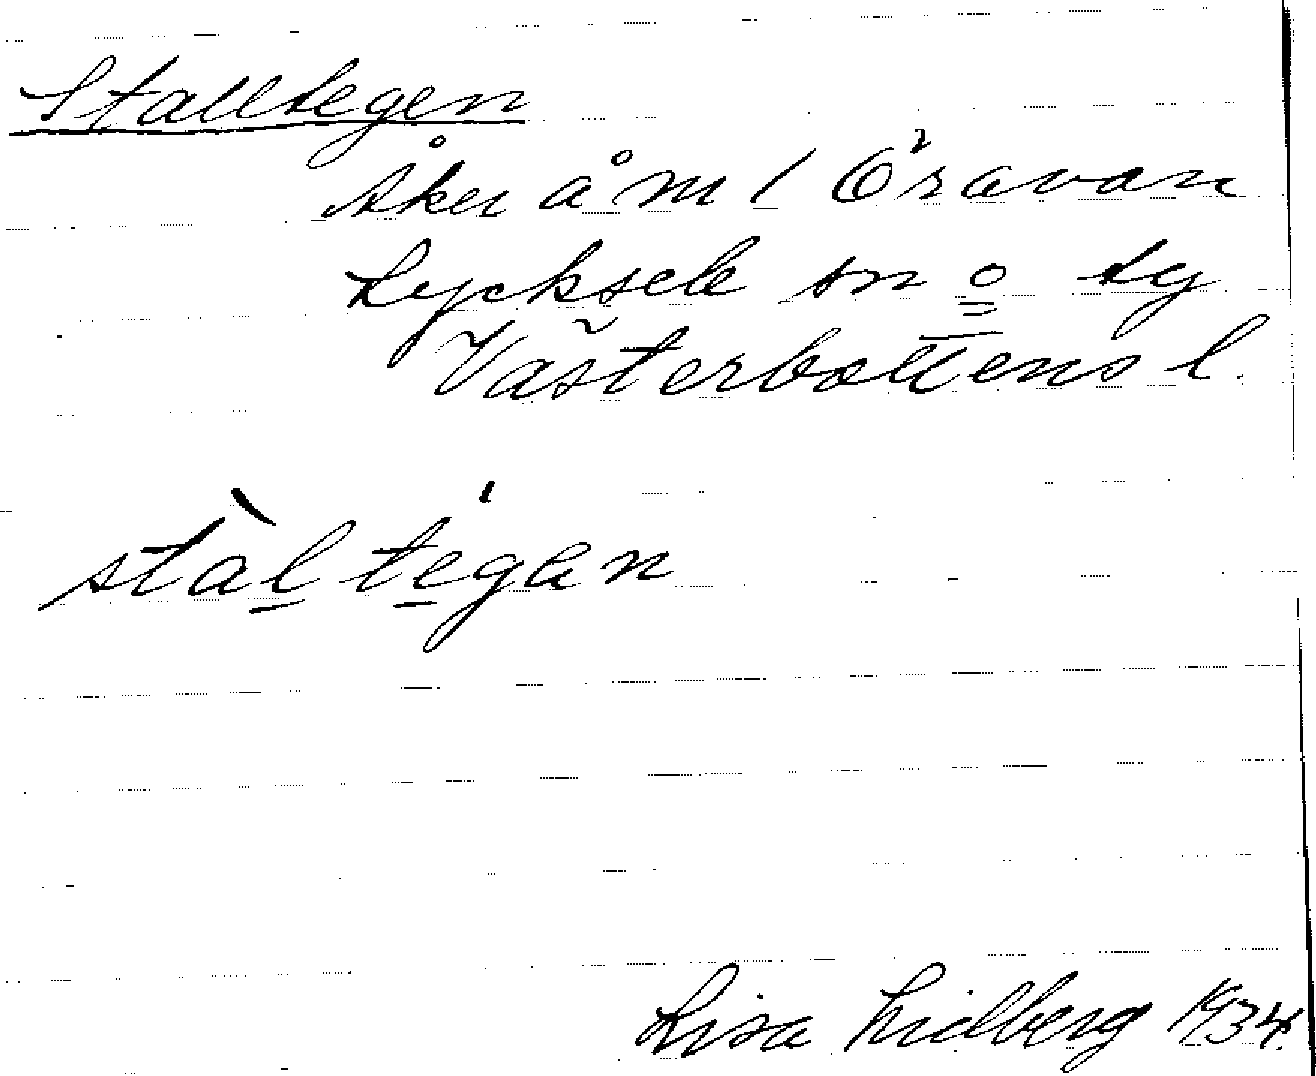 Stalltegen
Åker å m 1 Öravan
Lycksele sn o ty
Västerbottens l.
stàltegan
Lisa Lidberg 1934.